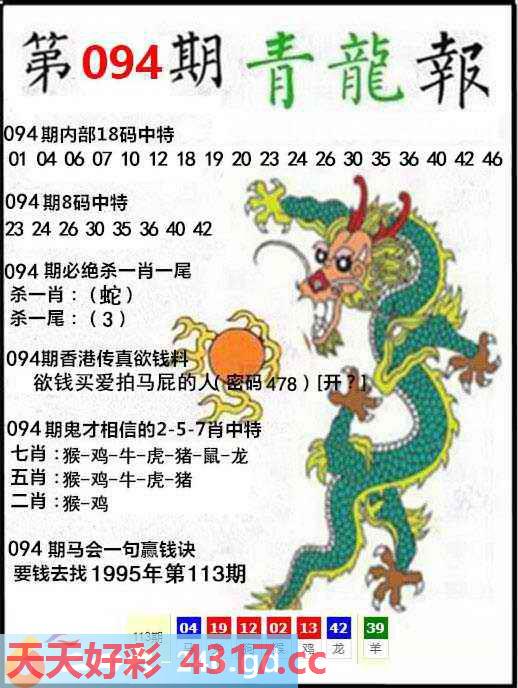 第094期青龍報
094期内部18码中特
01 04 06 07 10 12 18 19 20 23 24 26 30 35 36 40 42 46
094期8码中特
23 24 26 30 35 36 40 42
094期必绝杀一肖一尾
杀一肖：(蛇)
杀一尾：(3)
094期香港传真欲钱料
欲钱买爱拍马屁的人(密码478)[开?]
094期鬼才相信的2-5-7肖中特
七肖：猴-鸡-牛-虎-猪-鼠-龙
五肖：猴-鸡-牛-虎-猪
二肖：猴-鸡
094期马会一句赢钱诀
要钱去找1995年第113期
113期 04 19 12 02 13 42 39
鸡 龙 羊
天天好彩 4317.cc